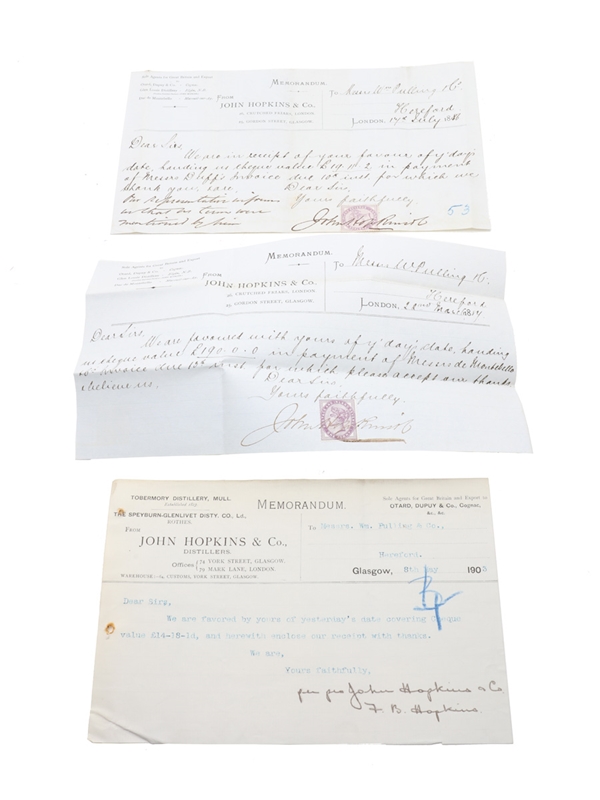 MEMORANDUM.
FROM
JOHN HOPKINS & Co.
GLASGOW.
To Messrs Wm Pulling & Co.
Hereford
LONDON, 17th July
Dear Sirs
We are in receipt of your favour of y'day's
date, handing us cheque value in payment
of Messrs Duff's Invoice due 10th inst. for which we
thank you. Dear Sirs,
Our representative informs
us that no terms were
mentioned by him
Yours faithfully
John Hopkins & Co
53
MEMORANDUM.
FROM
JOHN HOPKINS & Co.
CRUTCHED FRIARS, LONDON.
GORDON STREET, GLASGOW.
To Messrs W Pulling & Co.
Hereford
LONDON, 22nd March
Dear Sirs,
We are favoured with yours of y'day's date, handing
us cheque value £190.0.0 in payment of Messrs de Montebello
invoice due inst for which please accept our thanks
& believe us,
Dear Sirs
Yours faithfully.
John Hopkins & Co
TOBERMORY DISTILLERY, MULL.
THE SPEYBURN-GLENLIVET DISTY. CO., Ld.,
ROTHES.
FROM
JOHN HOPKINS & Co.,
DISTILLERS.
Offices 74 YORK STREET, GLASGOW.
79 MARK LANE, LONDON.
WAREHOUSE—64, CUSTOMS, YORK STREET, GLASGOW.
MEMORANDUM.
Sole Agents for Great Britain and Export to
OTARD, DUPUY & Co., Cognac,
&c. &c.
To Messrs. Wm. Pulling & Co.,
Hereford.
Glasgow, 8th May 1903
Dear Sirs,
We are favored by yours of yesterday's date covering Cheque
value £14-18-1d, and herewith enclose our receipt with thanks.
We are,
Yours faithfully,
per pro John Hopkins & Co
F. B. Hopkins.